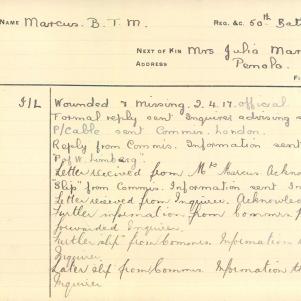 NAME Marcus. B. T. M. REG. &C. 50th Batt
NEXT OF KIN Mrs Julia Mar
ADDRESS Penola.
I/L Wounded & Missing. 2.4.17. official.
Formal reply sent Inquirer advising s
P/Cable sent Commis. London.
Reply from Commis. Information sent
"P of W. Limburg".
Letter received from Mrs Marcus. Ackno
Slip from Commis. Information sent In
Letter received from Inquirer. Acknowle
Further information from Commis.
forwarded Inquirer.
Further slip from Commis. Information
Inquirer.
Later slip from Commis. Information
Inquirer